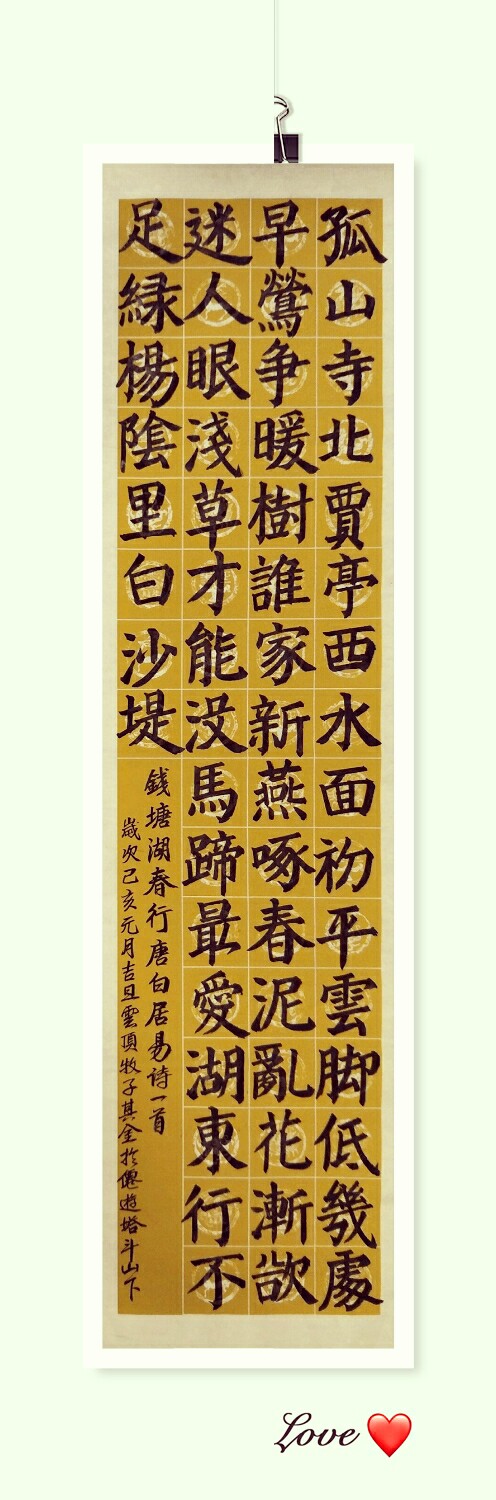 孤山寺北賈亭西水面初平雲脚低幾處
早鶯争暖樹誰家新燕啄春泥亂花漸欲
迷人眼淺草才能没馬蹄最愛湖東行不
足緑楊陰里白沙堤
錢塘湖春行唐白居易诗一首
歲次己亥元月吉旦雲頂牧子其金於僊遊塔斗山下
Love